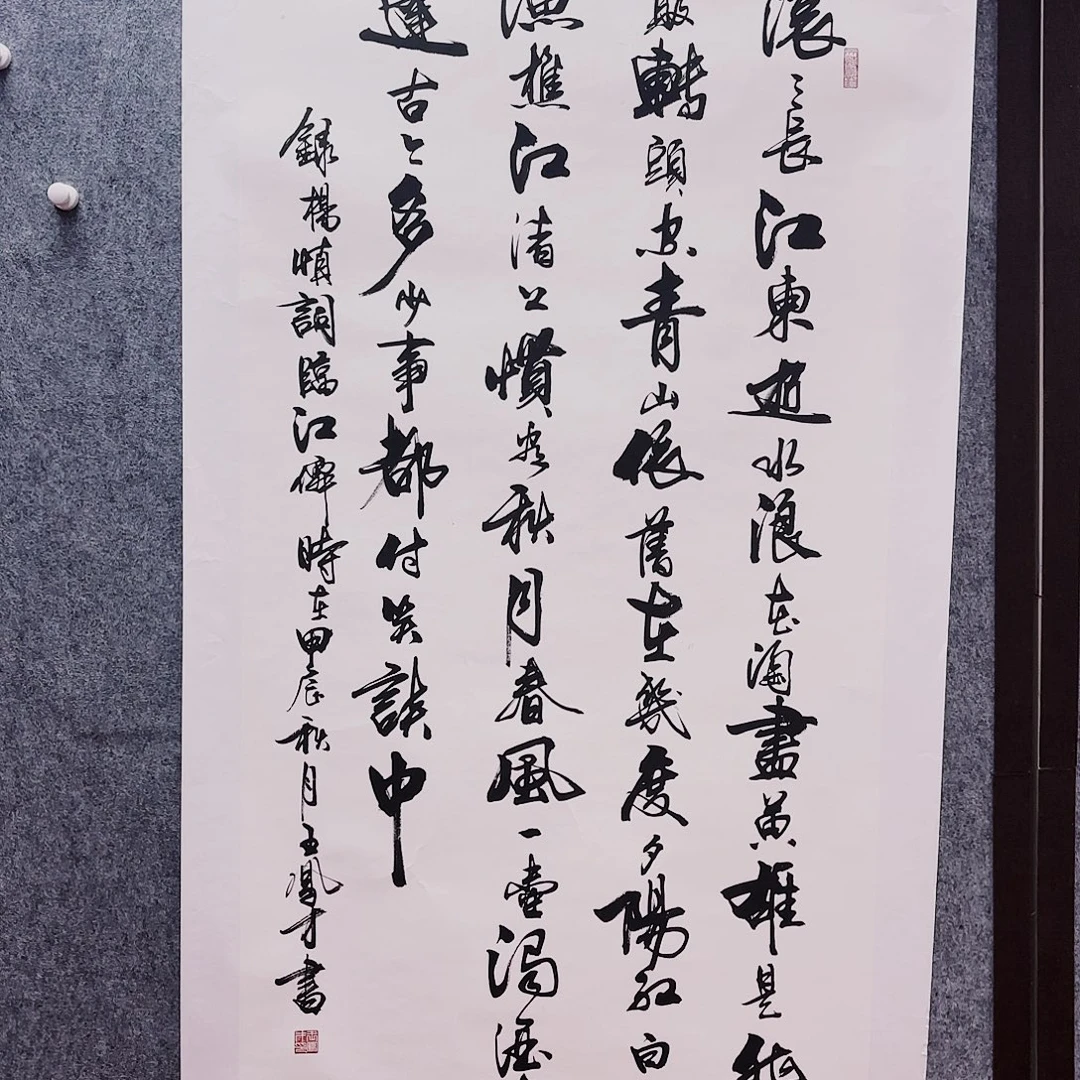 滚〻長江東逝水浪花淘盡英雄是非
敗轉頭空青山依舊在幾度夕陽紅白
漁樵江渚上慣看秋月春風一壺濁酒
逢古今多少事都付笑談中
錄楊慎詞臨江僊時在甲辰秋月王鳳才書